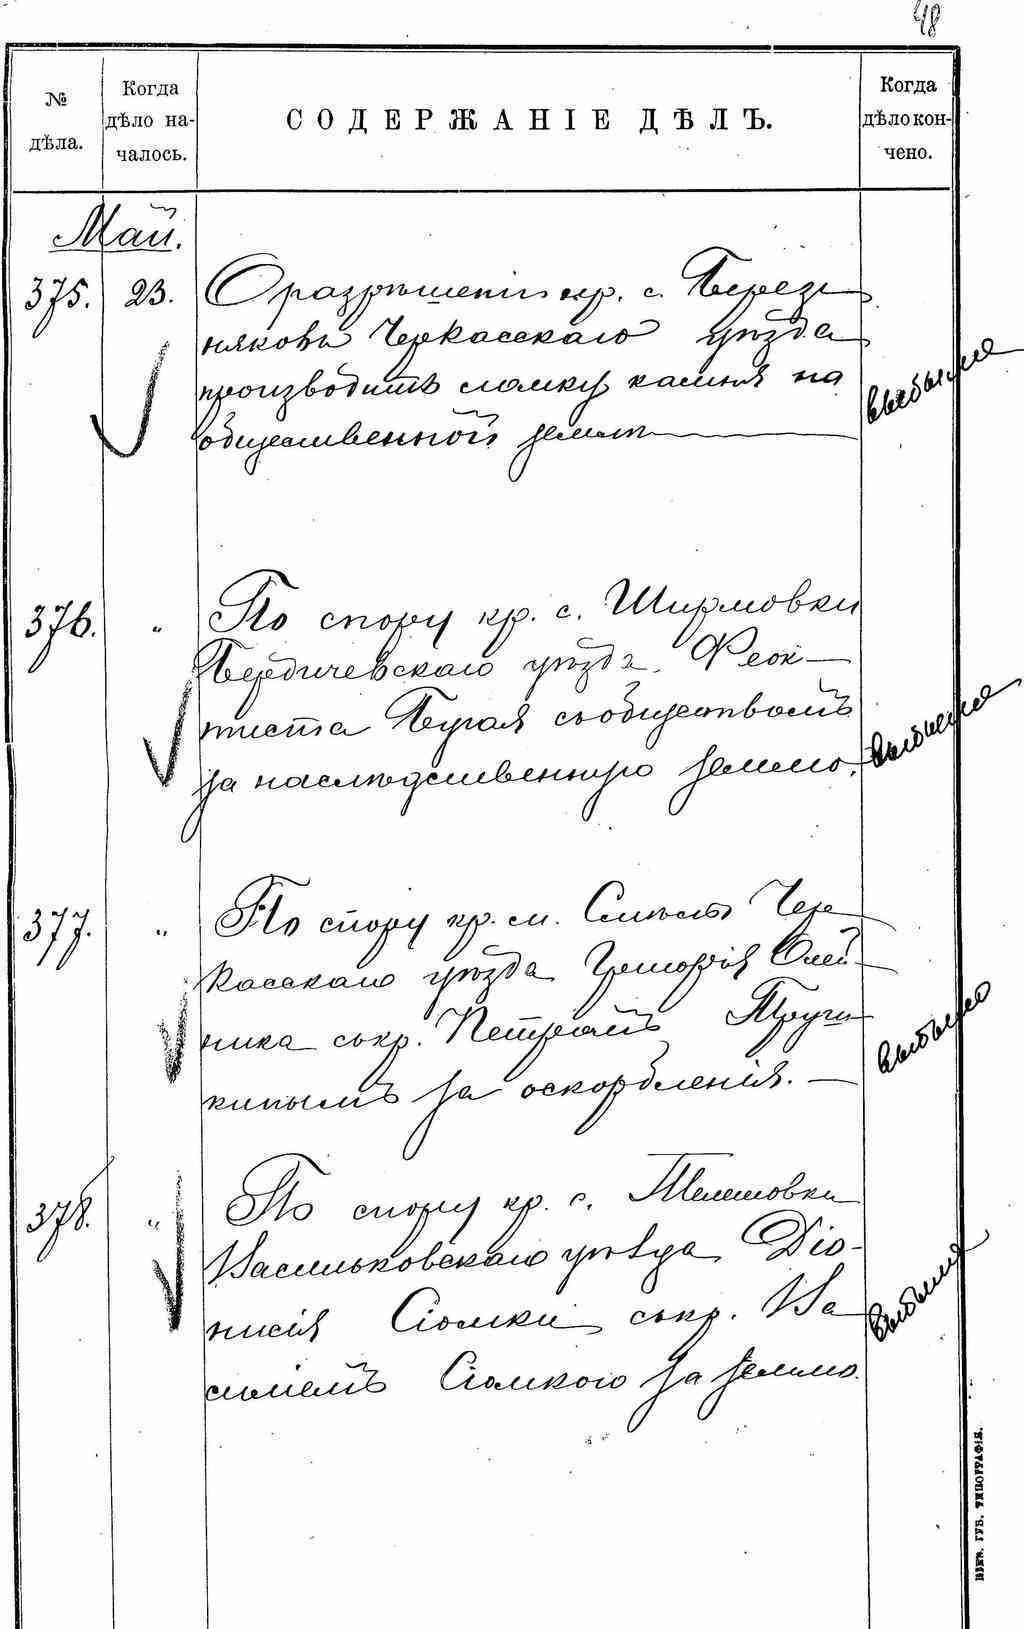 48
№ дѣла.
Когда дѣло началось.
СОДЕРЖАНІЕ ДѢЛЪ.
Когда дѣло кончено.
Май.
375. 23. О разрѣшеніи кр. с. Берез-
няковъ Черкасскаго уѣзда
производить ломку камня на
общественной землѣ
выбыло
376. " По спору кр. с. Ширмовки
Бердичевскаго уѣзда Феок-
тиста Бугая съ обществомъ
за наслѣдственную землю.
выбыло
377. " По спору кр. м. Смѣлы Чер-
касскаго уѣзда Григорія Олей-
ника съ кр. Петромъ
за оскорбленія.
выбыло
378. " По спору кр. с. Телешовки
Васильковскаго уѣзда Діо-
нисія Сіомки съ кр. Ва-
силіемъ Сіомкою за землю.
выбыло
КІЕВ. ГУБ. ТИПОГРАФІЯ.